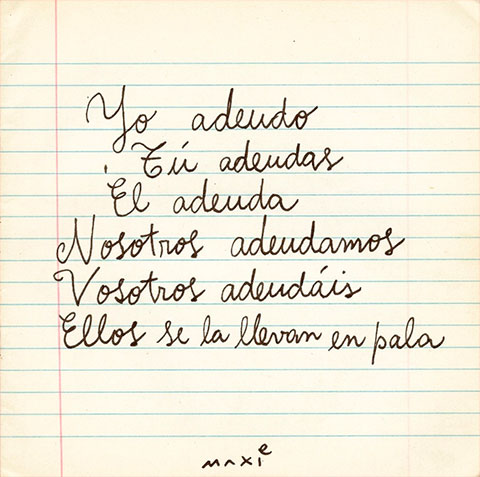 Yo adeudo
Tú adeudas
Él adeuda
Nosotros adeudamos
Vosotros adeudáis
Ellos se la llevan en pala
maxie